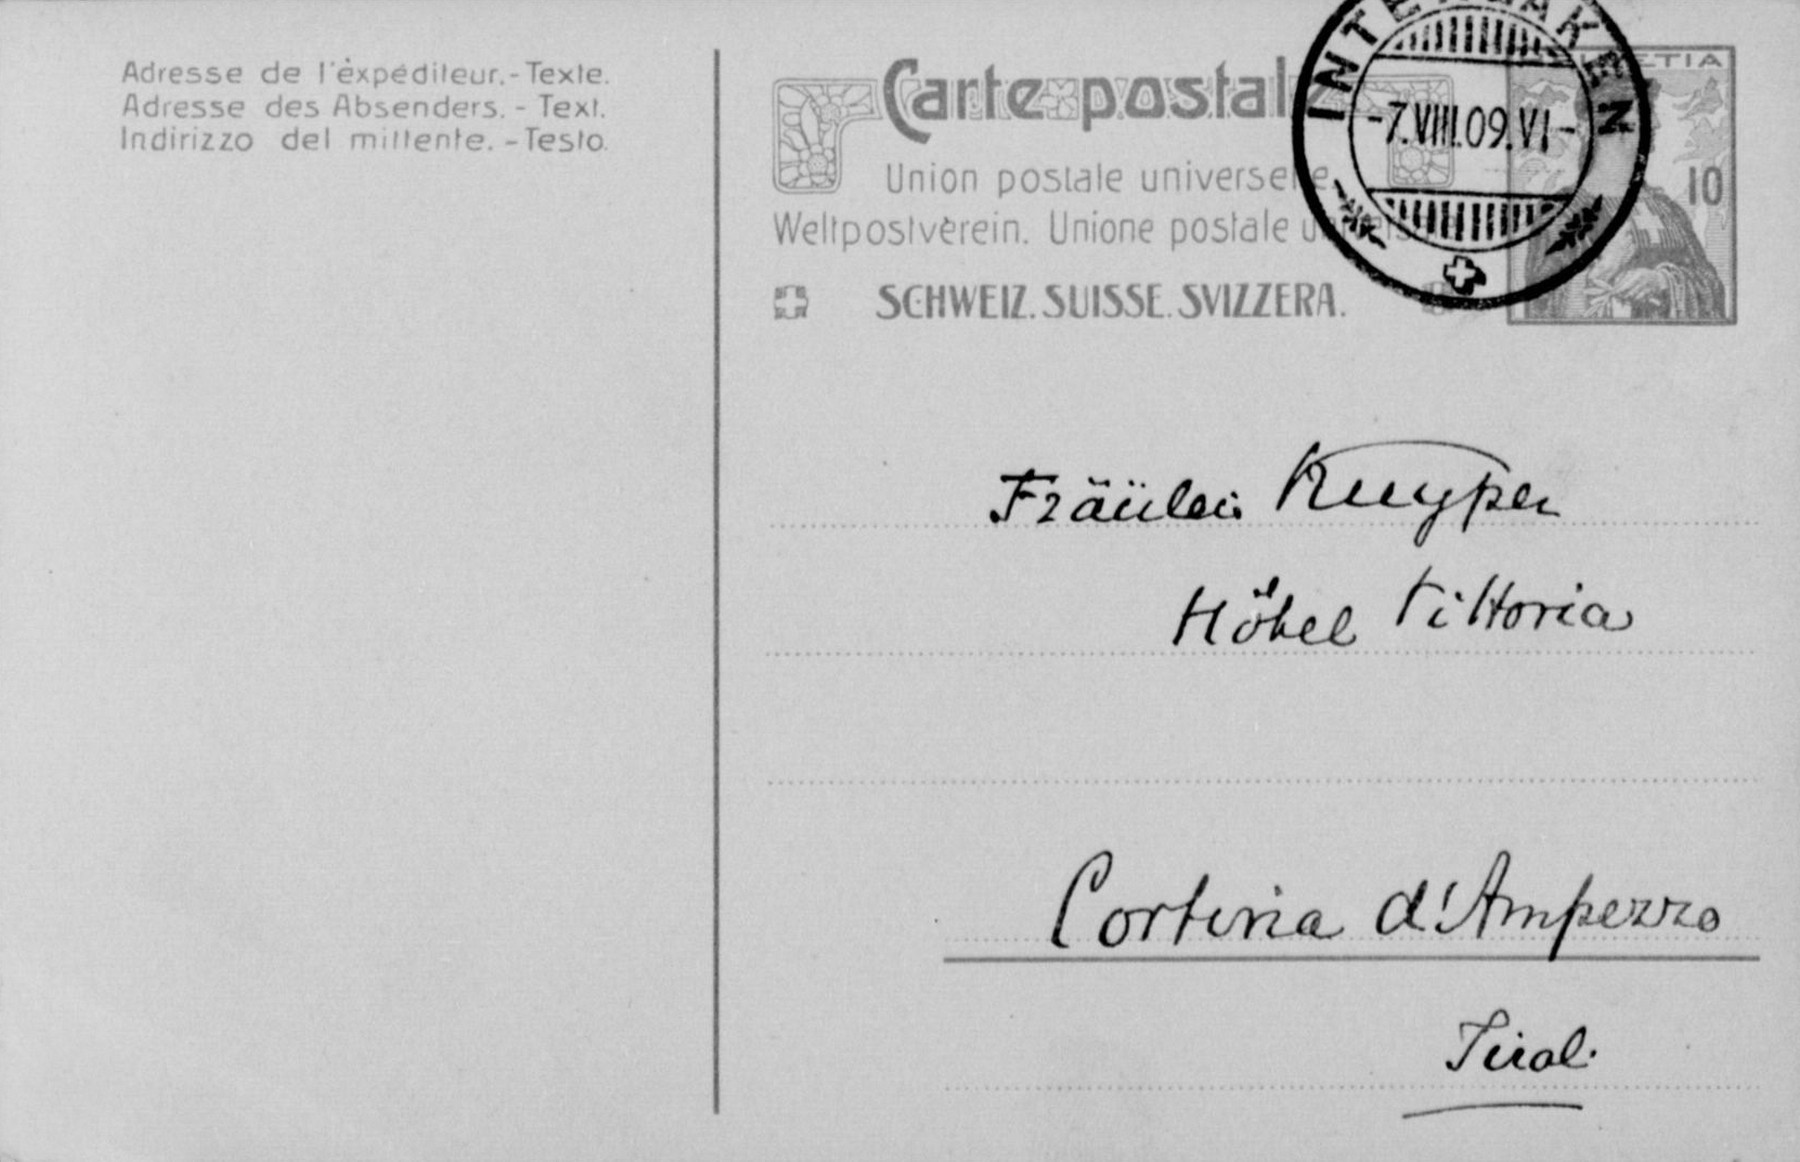 Adresse de l'èxpéditeur.-Texte.
Adresse des Absenders. - Text.
Indirizzo del mittente. - Testo.
Carte postale
Union postale universelle.
Weltpostvèrein. Unione postale universale
SCHWEIZ. SUISSE. SVIZZERA.
INTERLAKEN
-7.VIII.09.VI-
HELVETIA
10
Fräülein Kuyper
Hôtel Vittoria
Cortina d'Ampezzo
Tirol.